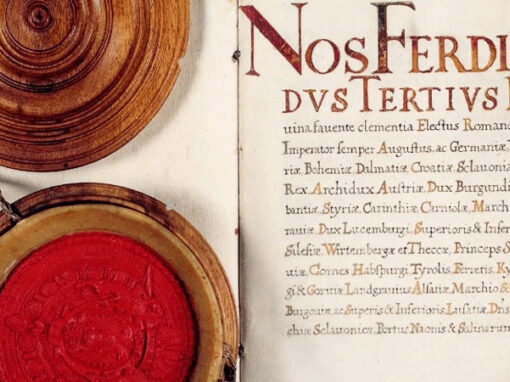 NOS FERDI
DVS TERTIVS
uina fauente clementia Electus Roman
Imperator semper Augustus, ac Germaniæ,
riæ Bohemiæ Dalmatiæ Croatiæ Sclauonia
Rex Archidux Austriæ, Dux Burgundi
bantiæ, Styriæ, Carinthiæ Carniolæ, March
rauiæ Dux Lucemburgi, Superioris & Infer
Silesiæ, Wirtembergæ et Theccæ, Princeps S
uiæ, Comes Habspurgi Tyrolis, Ferretis, Ky
gi & Goritiæ Landgrauius Alsatiæ Marchio &
Burgouiæ, ac Superis & Inferioris, Lusatiæ, Dn
chiæ Sclauonicæ, Portus Naonis & Salinarum